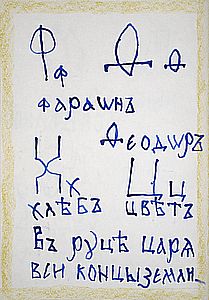 Ф ф Ѳ ѳ
фараѡнъ
Ѳеодѡръ
Х х Ц ц
хлѣбъ цвѣтъ
въ руцѣ царя
вси концы земли